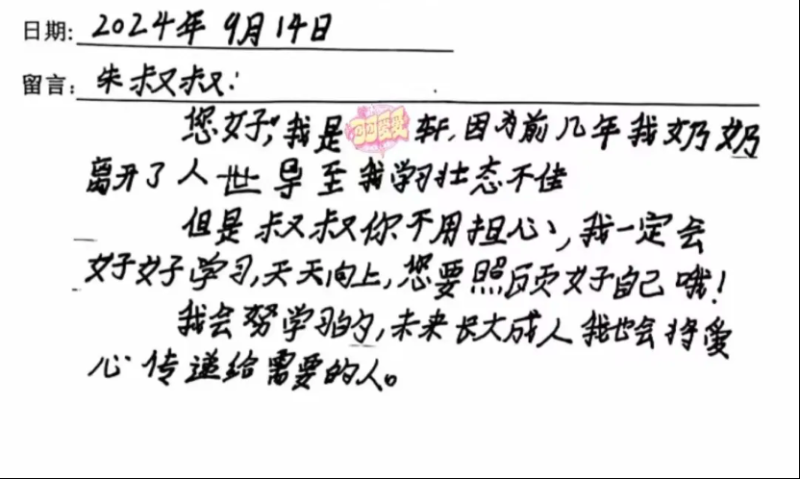 日期: 2024年 9月 14日
留言: 朱叔叔:
您好,我是可可爱爱轩,因为前几年我奶奶
离开了人世导至我学习壮态不佳
但是叔叔你不用担心,我一定会
好好学习,天天向上,您要照顾好自己哦!
我会努学习的,未来长大成人我也会将爱
心传递给需要的人。